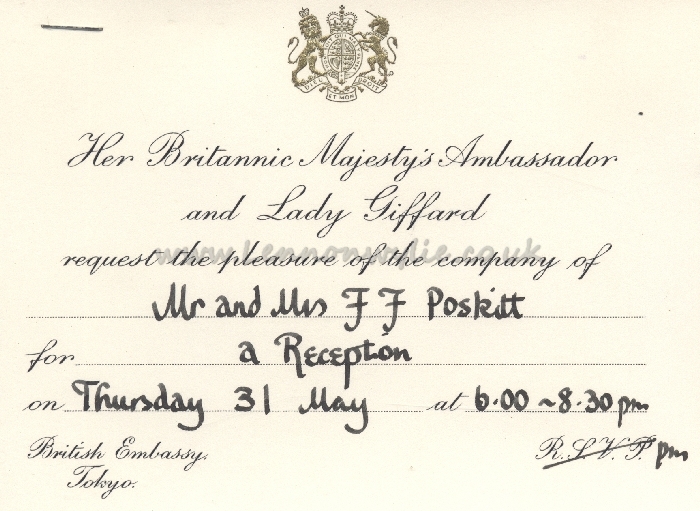 DIEU ET MON DROIT
Her Britannic Majesty's Ambassador
and Lady Giffard
www.lennonwylie.co.uk
request the pleasure of the company of
Mr and Mrs F F Poskitt
for a Reception
on Thursday 31 May at 6.00 ~ 8.30 pm
British Embassy, R.S.V.P. pm
Tokyo.